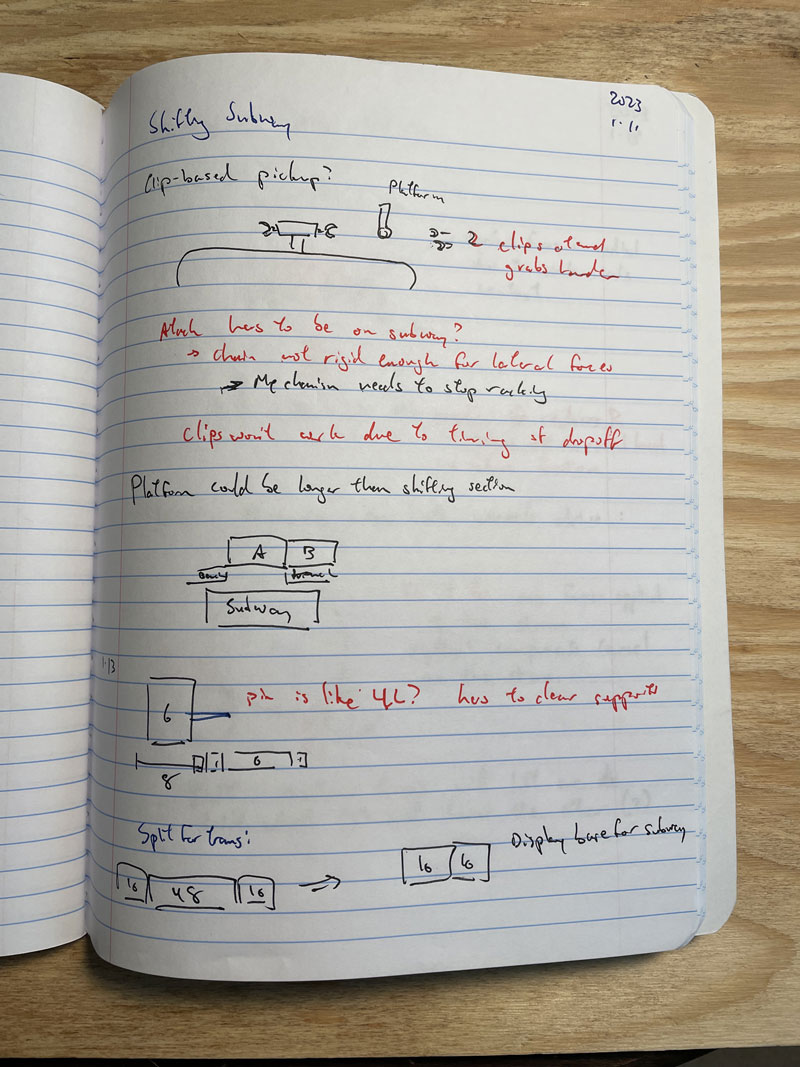 2023
1.11
Shifty Subway
Clip-based pickup?
Platform
2 clips
grabs harder
has to be on subway?
→ chain not rigid enough for lateral forces
→ Mechanism needs to stop
Clips won't work due to timing of dropoff
Platform could be longer then shifting section
A B
Subway
1.13
6
pin is like 4L? has to clear supports
8
1 6 1
Split for trans:
16 48 16 → 16 16
Display base for subway